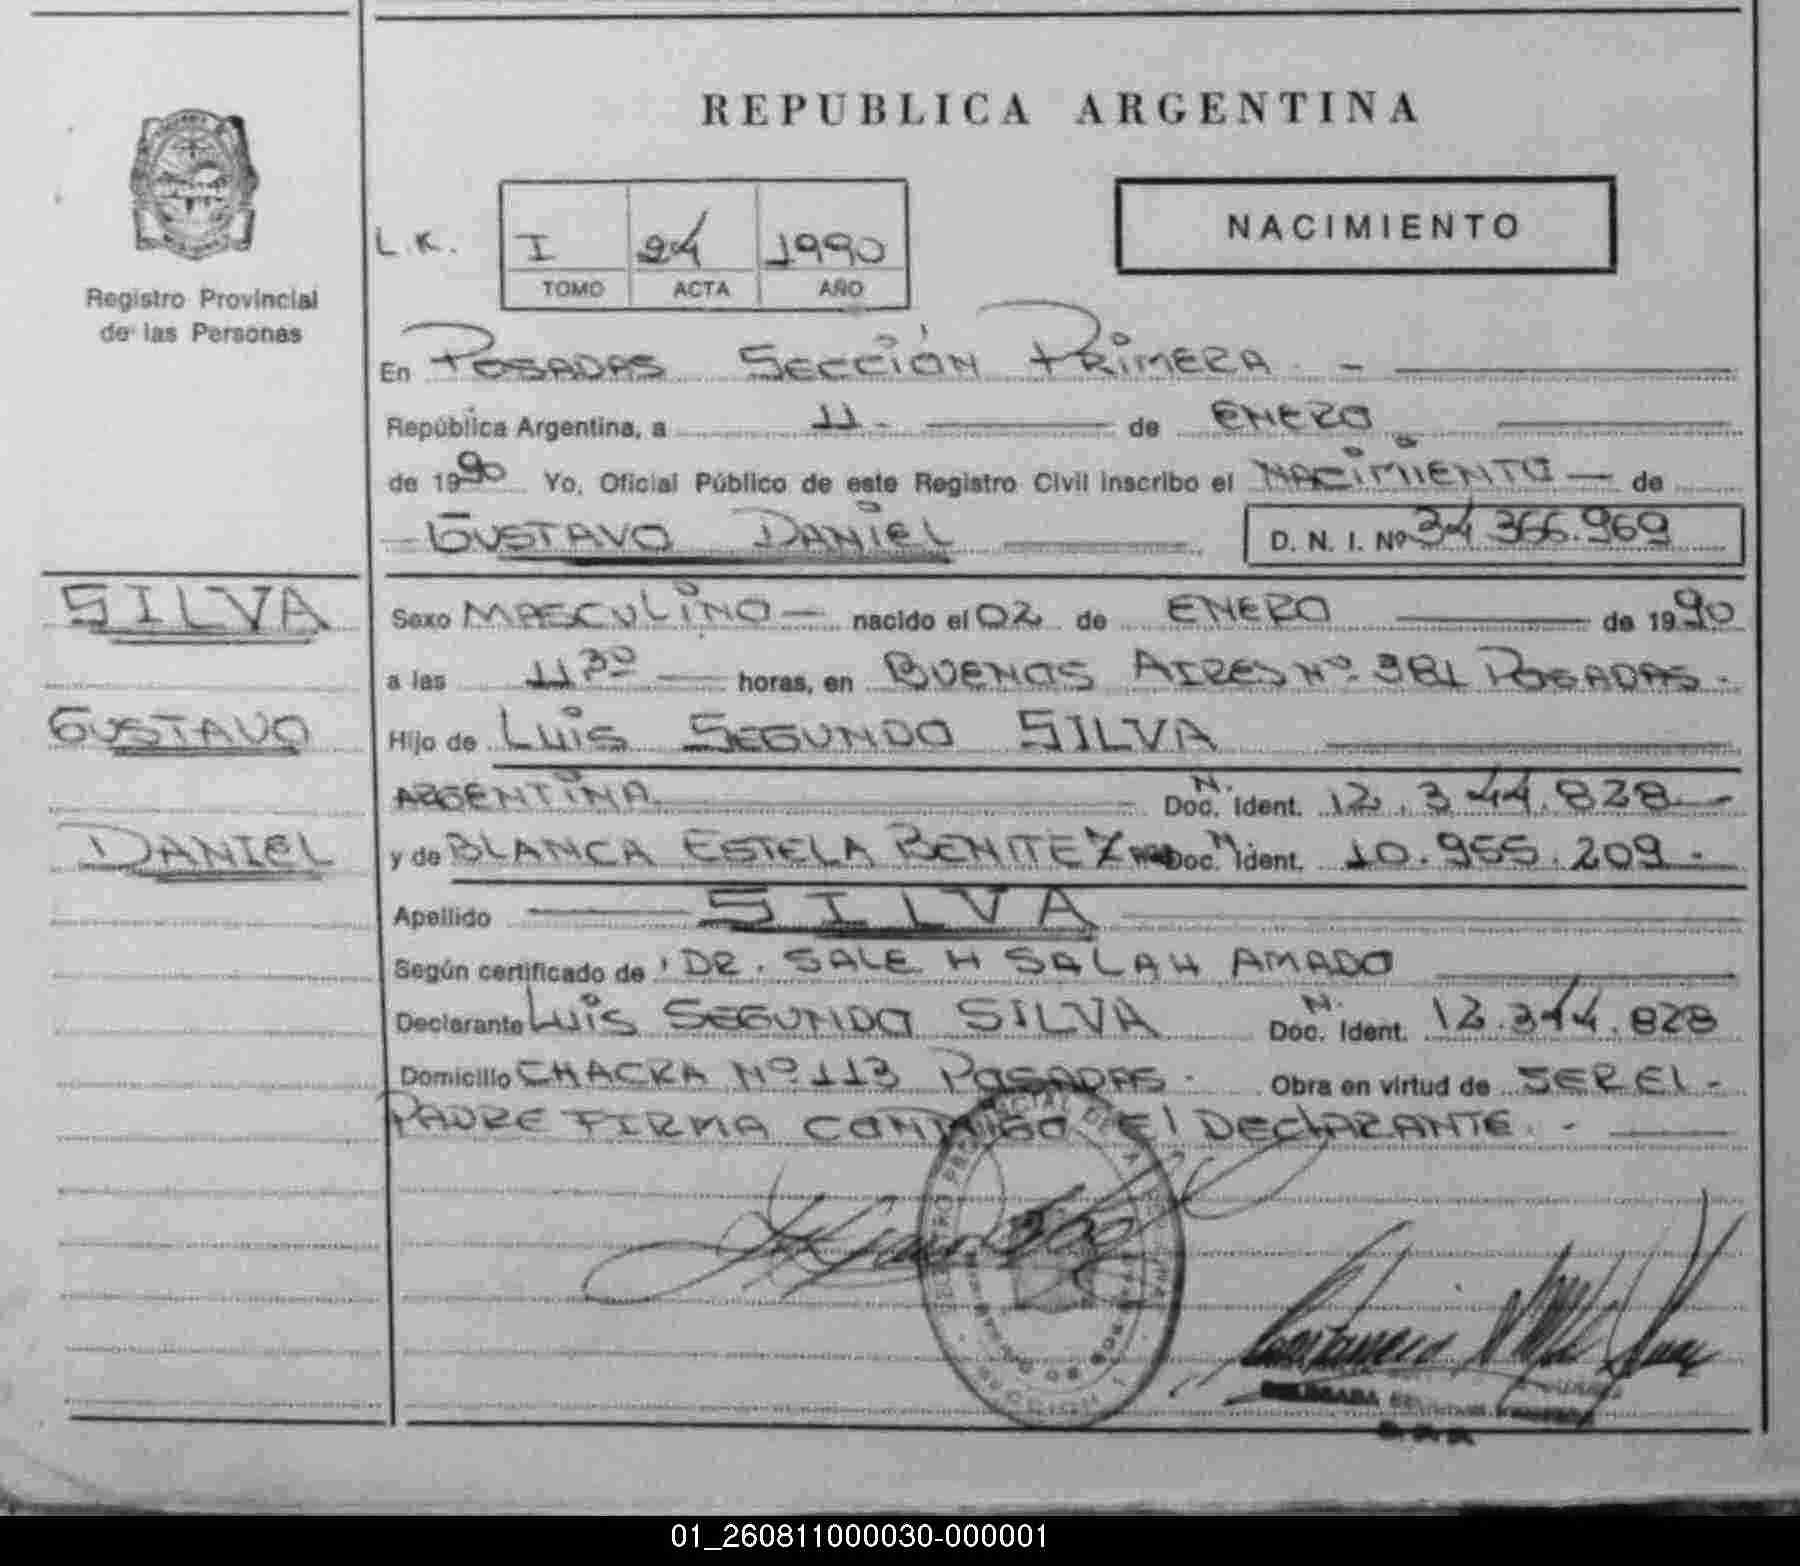 REPUBLICA ARGENTINA
Registro Provincial
de las Personas
L.K.
I 24 1990
TOMO ACTA AÑO
NACIMIENTO
En POSADAS SECCIÓN PRIMERA. -
República Argentina, a 11. de ENERO
de 1990 Yo, Oficial Público de este Registro Civil inscribo el NACIMIENTO de
GUSTAVO DANIEL
D. N. I. Nº 34 366.969
SILVA
GUSTAVO
DANIEL
Sexo MASCULINO - nacido el 02 de ENERO de 1990
a las 11 30 horas, en BUENOS AIRES Nº. 981 POSADAS.
Hijo de LUIS SEGUNDO SILVA
ARGENTINA N. Doc. Ident. 12.344.828
y de BLANCA ESTELA BENITEZ N. Doc. Ident. 10.955.209.
Apellido SILVA
Según certificado de DR. SALE H SALAH AMADO
Declarante LUIS SEGUNDO SILVA N. Doc. Ident. 12.344.828
Domicilio CHACRA Nº 113 POSADAS. Obra en virtud de SER El.
PADRE FIRMA CONMIGO El DEClARANTE. -
01_260811000030-000001